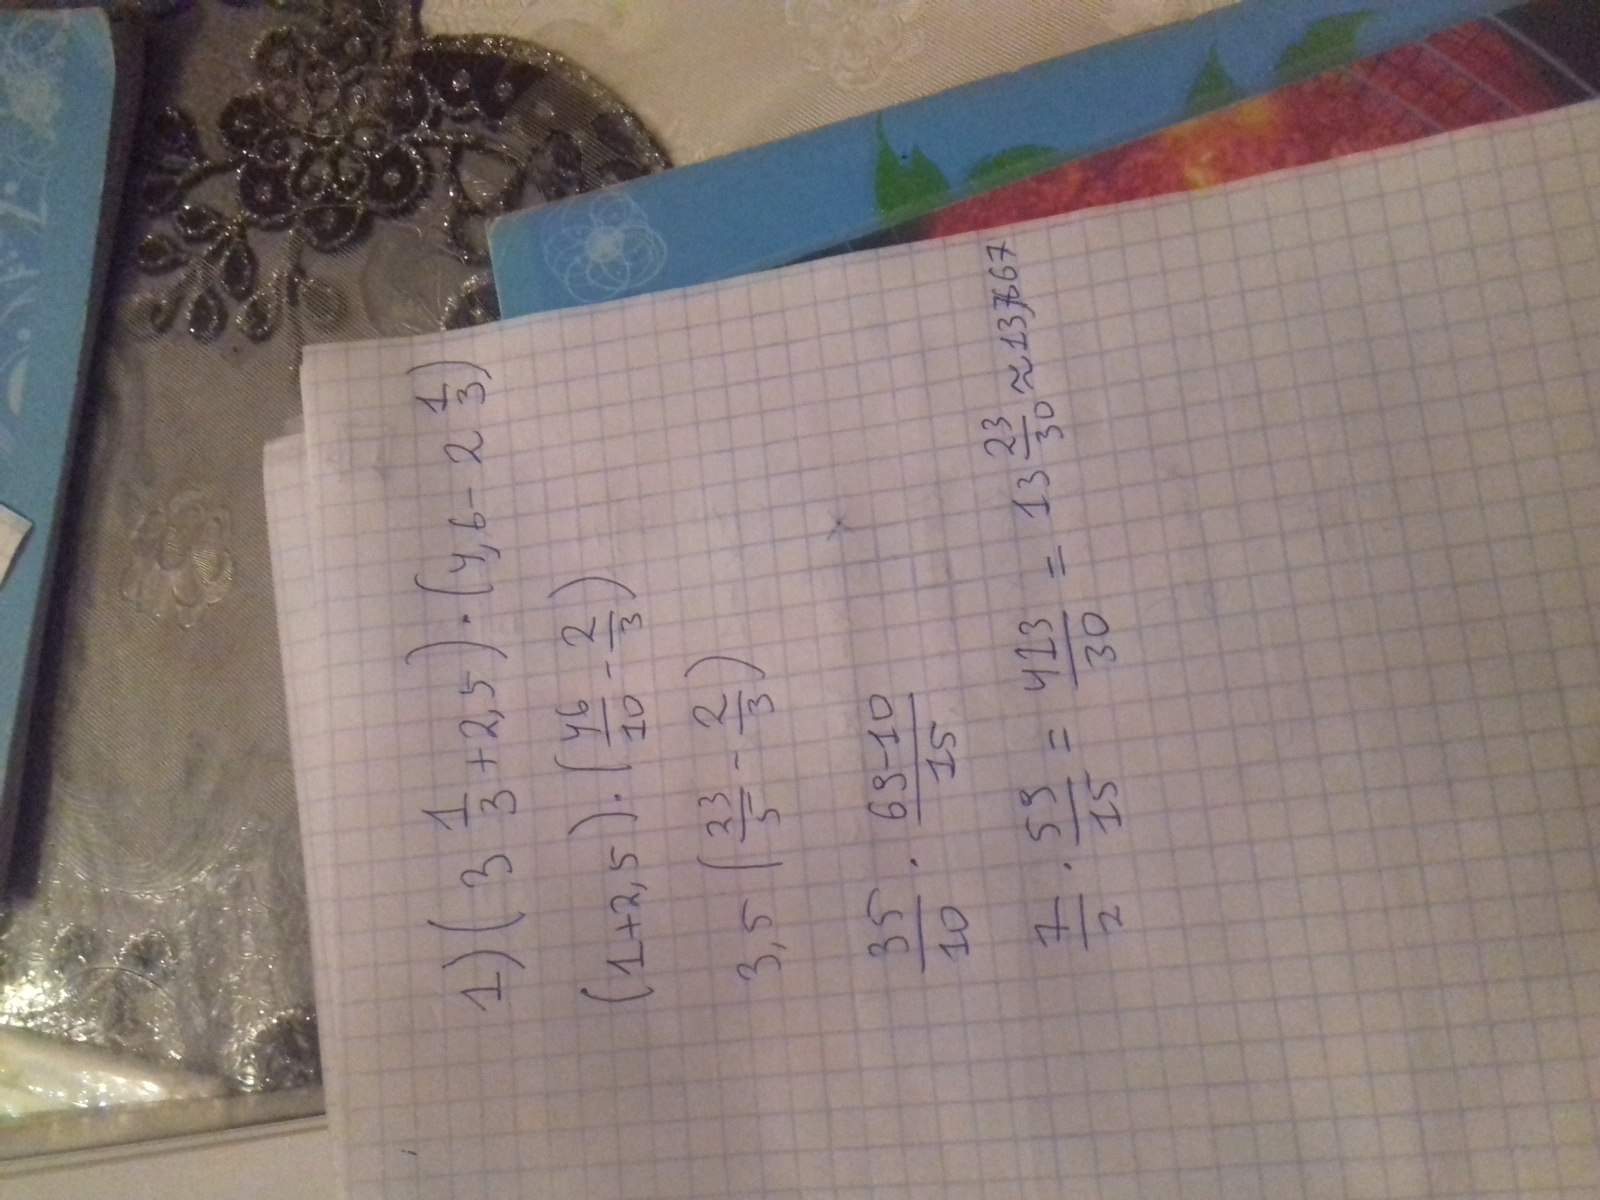 1) (3 1/3 + 2,5) · (4,6 - 2 1/3)
(1+2,5) · (46/10 - 2/3)
3,5 (23/5 - 2/3)
35/10 · 69-10/15
7/2 · 59/15 = 413/30 = 13 23/30 ≈ 13,7667